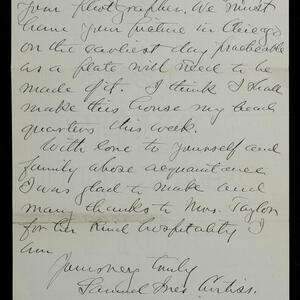 your photographer. We must
have your picture in Chicago
on the earliest day practicable
as a plate will need to be
made of it. I think I shall
make this house my head
quarters this week.
With love to yourself and
family whose acquaintance
I was glad to make and
many thanks to Mrs. Taylor
for her kind hospitality I
am
Yours very truly
Samuel Ives Curtiss.